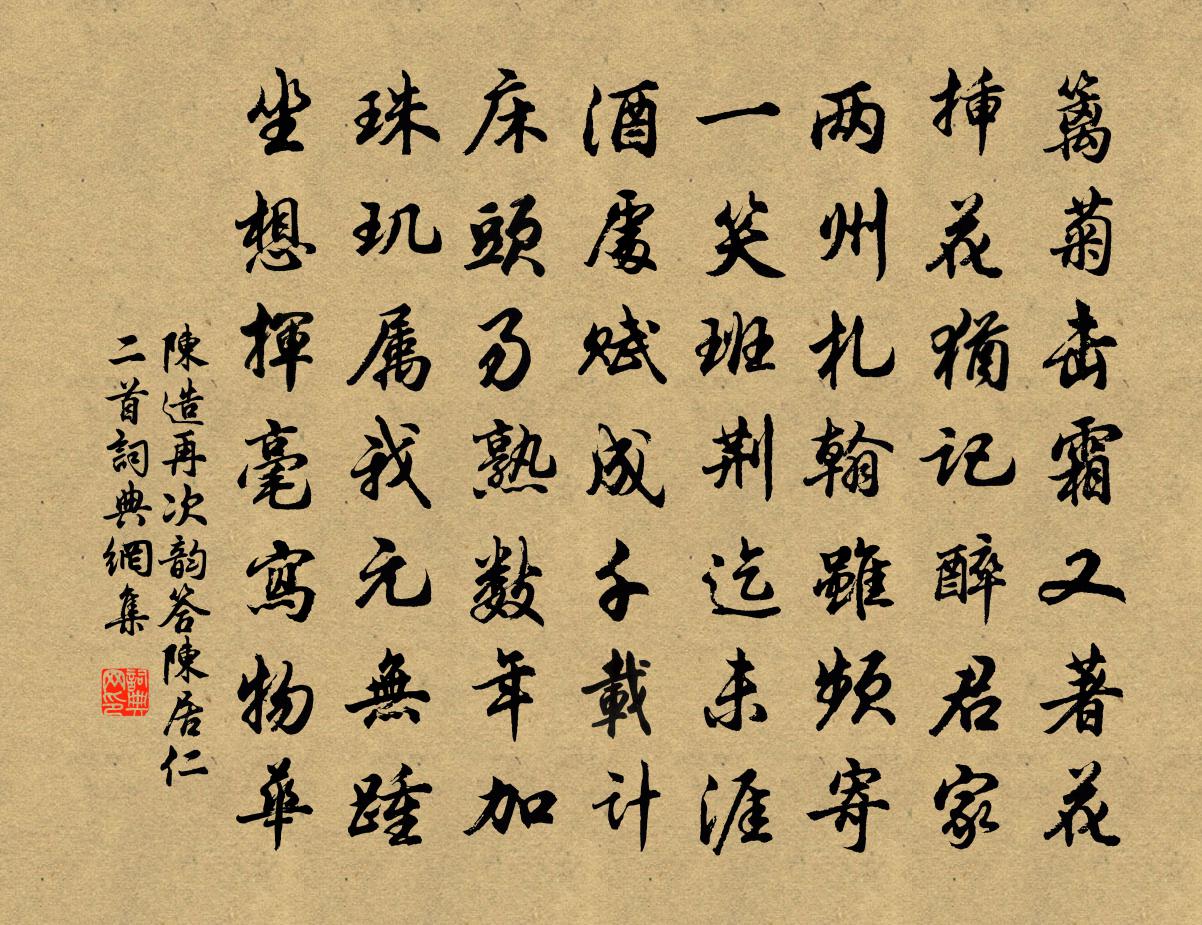 籬菊击霜又著花
插花猶记醉君家
两州札翰雖频寄
一笑班荆迄未涯
酒處赋成千載计
床頭易熟数年加
珠玑属我元無踵
坐想揮毫寫物華
陳造再次韵答陳居仁
二首詞典網集
詞典
网印